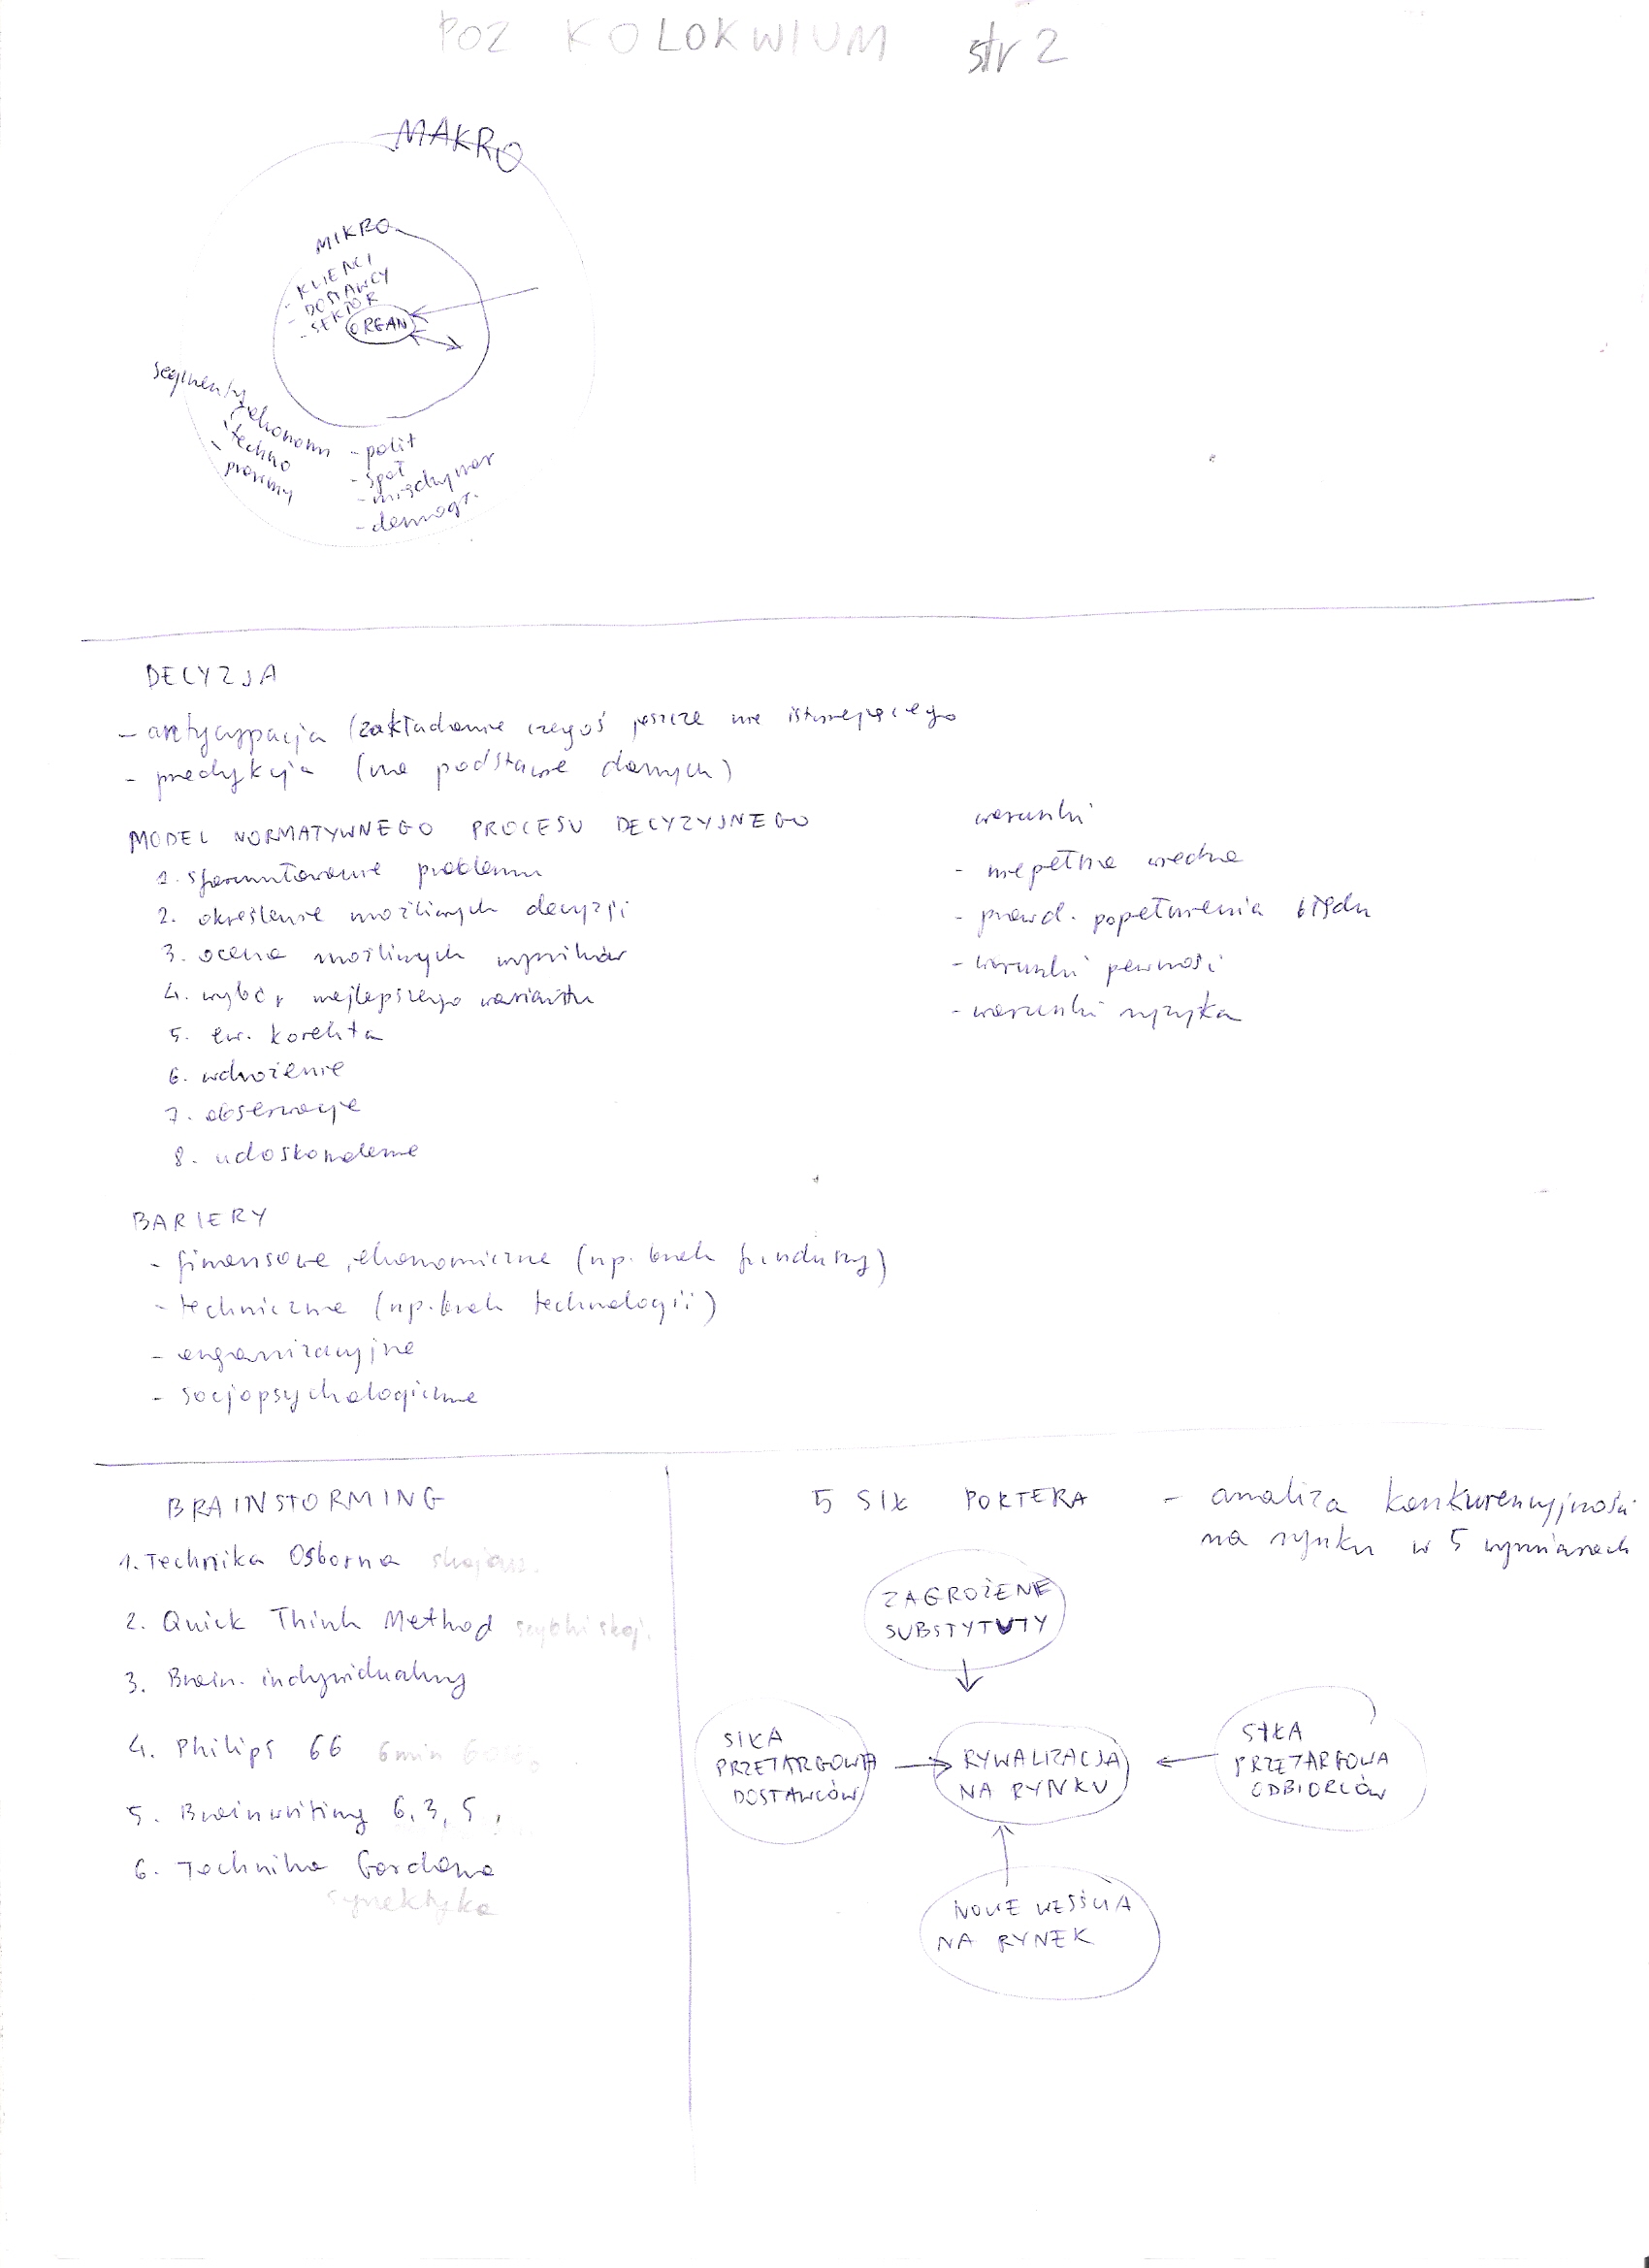 POZ KOLOKWIUM str 2
MAKRO
MIKRO
- KLIENCI
- DOSTAWCY
- SEKTOR
ORGAN
segmenty
- ekonom
- techno
- prawny
- polit
- społ
- międzynar
- demogr.
DECYZJA
- antycypacja (zakładanie czegoś jeszcze nie istniejącego
- predykcja (na podstawie danych)
MODEL NORMATYWNEGO PROCESU DECYZYJNEGO
1. sformułowanie problemu
2. określenie możliwych decyzji
3. ocena możliwych wyników
4. wybór najlepszego wariantu
5. ew. korekta
6. wdrożenie
7. obserwacje
8. udoskonalenie
warunki
- niepełna wiedza
- prawd. popełnienia błędu
- warunki pewności
- warunki ryzyka
BARIERY
- finansowe, ekonomiczne (np. brak funduszy)
- techniczne (np. brak technologii)
- organizacyjne
- socjopsychologiczne
BRAINSTORMING
1. Technika Osborna skojarz.
2. Quick Think Method szybki skoj.
3. Brain. indywidualny
4. Philips 66 6 min 6 osób
5. Brainwriting 6, 3, 5,
6. Technika Gordona
synektyka
5 SIŁ PORTERA - analiza konkurencyjności
na rynku w 5 wymiarach
ZAGROŻENIE
SUBSTYTUTY
SIŁA
PRZETARGOWA
DOSTAWCÓW
RYWALIZACJA
NA RYNKU
SIŁA
PRZETARGOWA
ODBIORCÓW
NOWE WEJŚCIA
NA RYNEK